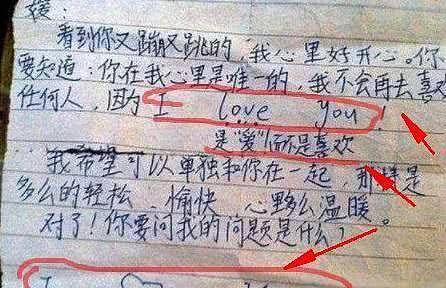 媛：
看到你又蹦又跳的，我心里好开心。你
要知道：你在我心里是唯一的，我不会再去喜欢
任何人，因为 I love you！
是“爱”而不是喜欢
我希望可以单独和你在一起，那将是
多么的轻松、愉快、心多么温暖。
对了！你要问我的问题是什么？